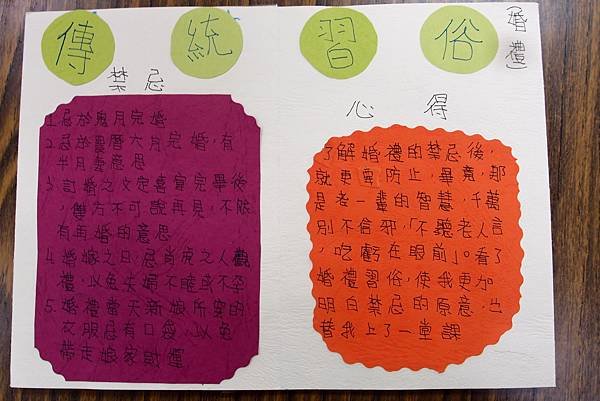 傳統習俗
(婚禮)
禁忌
1.忌於鬼月完婚
2.忌於農曆六月完婚,有
半月妻意思
3.訂婚之文定喜宴完畢後
,雙方不可說再見,不然
有再婚的意思
4.婚嫁之日,忌肖虎之人觀
禮,以免夫婦不睦或不孕
5.婚禮當天新娘所穿的
衣服忌有口袋,以免
帶走娘家財運
心得
了解婚禮的禁忌後,
就更要防止,畢竟,那
是老一輩的智慧,千萬
別不信邪,「不聽老人言
,吃虧在眼前」。看了
婚禮習俗,使我更加
明白禁忌的原意,也
替我上了一堂課